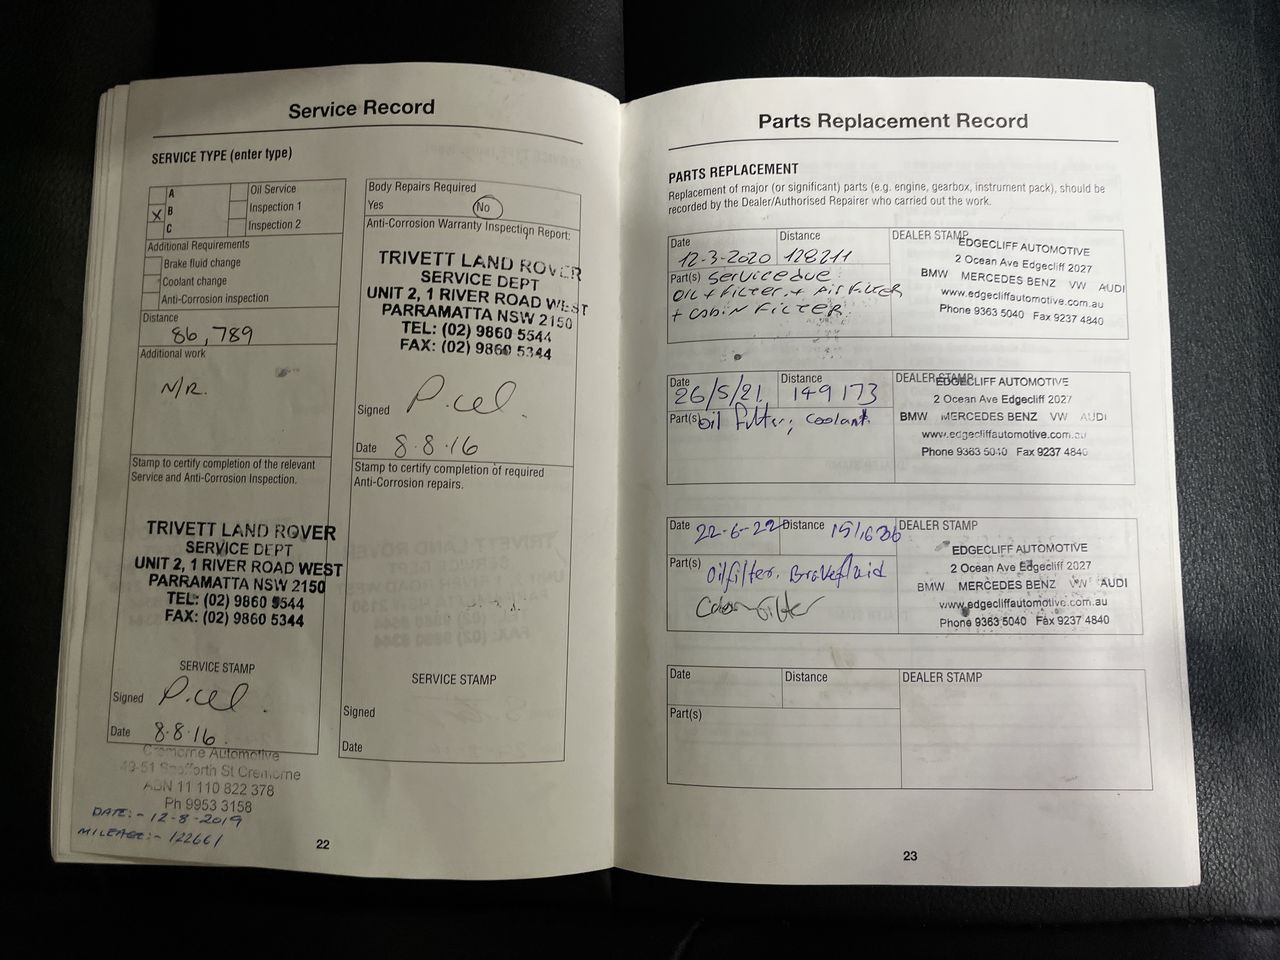 Service Record
SERVICE TYPE (enter type)
A
X B
C
Oil Service
Inspection 1
Inspection 2
Additional Requirements
Brake fluid change
Coolant change
Anti-Corrosion inspection
Distance
86,789
Additional work
N/R.
Stamp to certify completion of the relevant
Service and Anti-Corrosion Inspection.
TRIVETT LAND ROVER
SERVICE DEPT
UNIT 2, 1 RIVER ROAD WEST
PARRAMATTA NSW 2150
TEL: (02) 9860 5544
FAX: (02) 9860 5344
SERVICE STAMP
Signed
Date 8.8.16.
Cremorne Automotive
49-51 Spofforth St Cremorne
ABN 11 110 822 378
Ph 9953 3158
DATE:- 12-8-2019
MILEAGE:- 122661
Body Repairs Required
Yes No
Anti-Corrosion Warranty Inspection Report:
TRIVETT LAND ROVER
SERVICE DEPT
UNIT 2, 1 RIVER ROAD WEST
PARRAMATTA NSW 2150
TEL: (02) 9860 5544
FAX: (02) 9860 5344
Signed
Date 8.8.16
Stamp to certify completion of required
Anti-Corrosion repairs.
SERVICE STAMP
Signed
Date
22
Parts Replacement Record
PARTS REPLACEMENT
Replacement of major (or significant) parts (e.g. engine, gearbox, instrument pack), should be
recorded by the Dealer/Authorised Repairer who carried out the work.
Date 12-3-2020 Distance 128211
Part(s) Service due
OIL + FILTER + AIR FILTER
+ CABIN FILTER.
DEALER STAMP
EDGECLIFF AUTOMOTIVE
2 Ocean Ave Edgecliff 2027
BMW MERCEDES BENZ VW AUDI
www.edgecliffautomotive.com.au
Phone 9363 5040 Fax 9237 4840
Date 26/5/21 Distance 149173
Part(s) oil filter, coolant
DEALER STAMP
EDGECLIFF AUTOMOTIVE
2 Ocean Ave Edgecliff 2027
BMW MERCEDES BENZ VW AUDI
www.edgecliffautomotive.com.au
Phone 9363 5040 Fax 9237 4840
Date 22-6-22 Distance
Part(s) Oilfilter. Brakefluid
Cabin filter
DEALER STAMP
EDGECLIFF AUTOMOTIVE
2 Ocean Ave Edgecliff 2027
BMW MERCEDES BENZ VW AUDI
www.edgecliffautomotive.com.au
Phone 9363 5040 Fax 9237 4840
Date Distance
Part(s)
DEALER STAMP
23